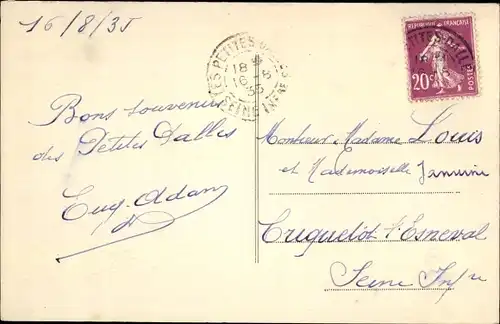 16/8/35
LES PETITES DALLES
18 H
16 - 8
35
SEINE INFRE
RÉPUBLIQUE FRANÇAISE
20c
POSTES
Bons souvenirs
des Petites Dalles
Eug. Adam
Monsieur & Madame Louis
et Mademoiselle Janvrine
Criquetot s/ Esneval
Seine Infre